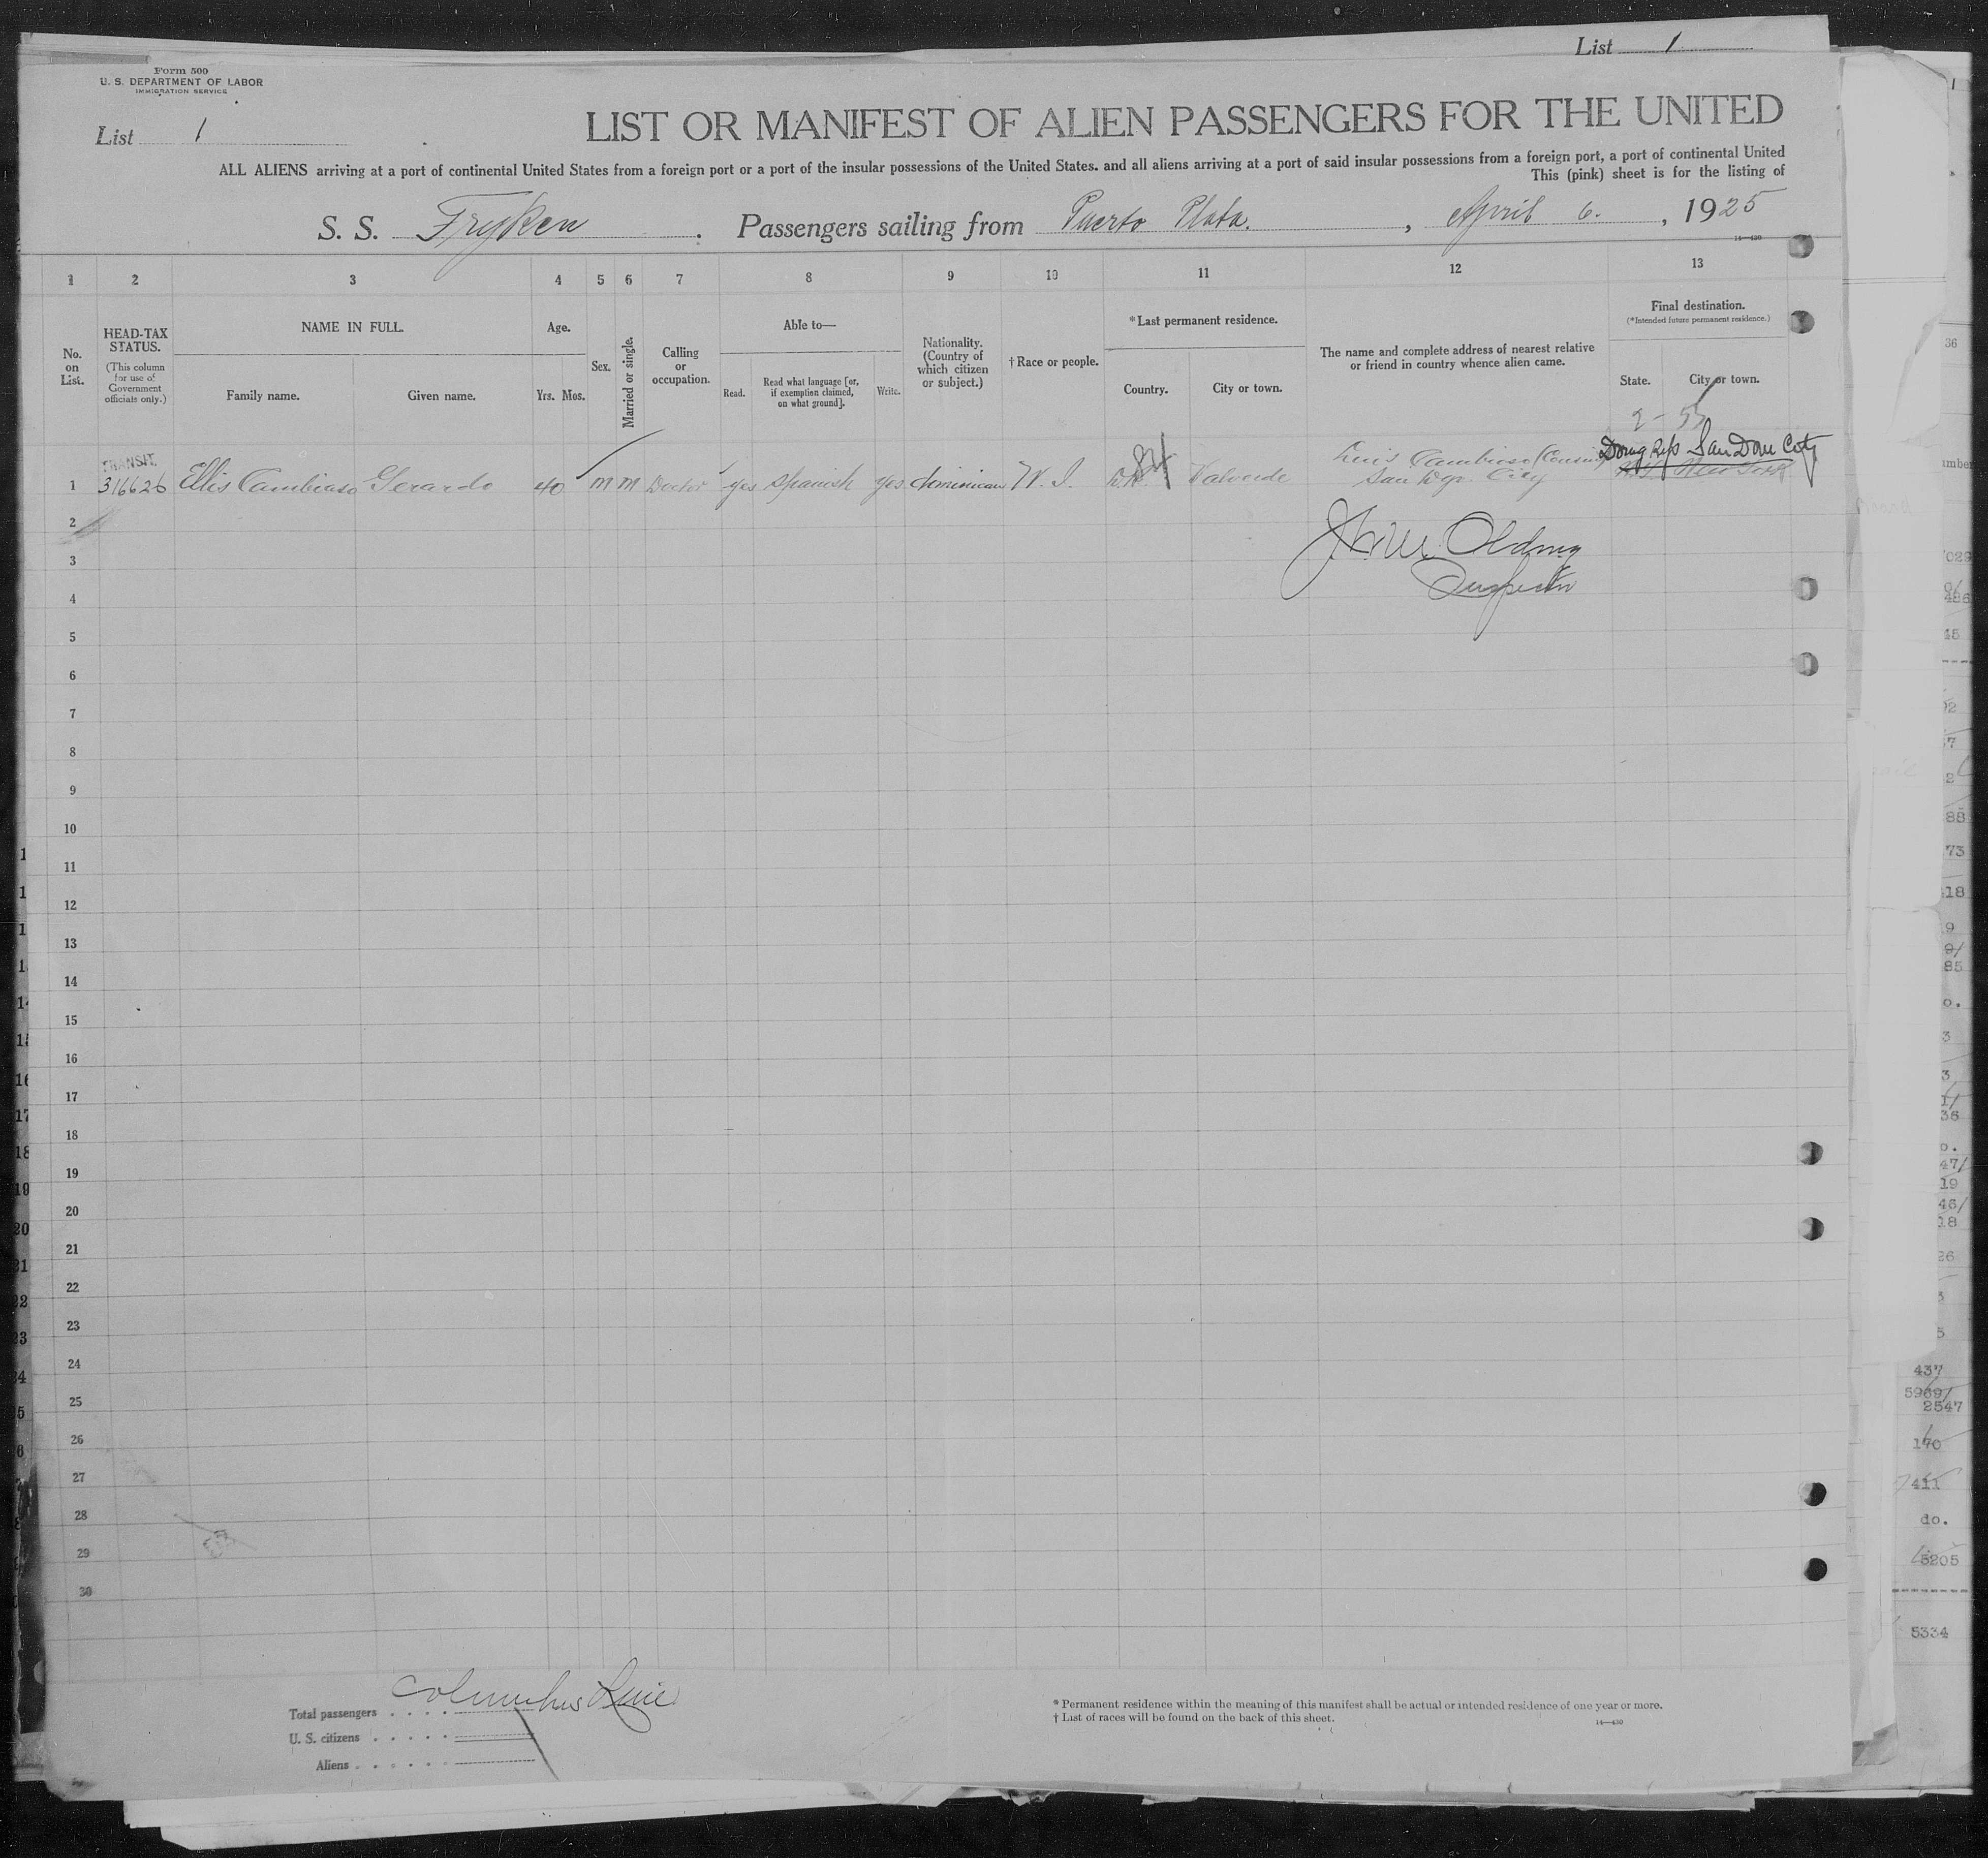 List 1
Form 500
U. S. DEPARTMENT OF LABOR
IMMIGRATION SERVICE
List 1
LIST OR MANIFEST OF ALIEN PASSENGERS FOR THE UNITED
ALL ALIENS arriving at a port of continental United States from a foreign port or a port of the insular possessions of the United States. and all aliens arriving at a port of said insular possessions from a foreign port, a port of continental United
This (pink) sheet is for the listing of
S. S. Fryken . Passengers sailing from Puerto Plata. , April 6. , 1925
14—430
1 2 3 4 5 6 7 8 9 10 11 12 13
No. on List.
HEAD-TAX STATUS.
(This column for use of Government officials only.)
NAME IN FULL.
Family name. Given name.
Age.
Yrs. Mos.
Sex.
Married or single.
Calling or occupation.
Able to—
Read. Read what language [or, if exemption claimed, on what ground]. Write.
Nationality. (Country of which citizen or subject.)
†Race or people.
*Last permanent residence.
Country. City or town.
The name and complete address of nearest relative or friend in country whence alien came.
Final destination.
(*Intended future permanent residence.)
State. City or town.
TRANSIT.
1 316626 Ellis Cambiaso Gerardo 40 m m Doctor yes Spanish yes dominican W. I. Valverde Luis Cambiaso (Cousin) Domg Rep San Dom City
San Dgo. City New York
2
Olding
3
Inspector
4
5
6
7
8
9
10
11
12
13
14
15
16
17
18
19
20
21
22
23
24
25
26
27
28
29
30
Columbus Line
Total passengers . . . .
U. S. citizens . . . . .
Aliens . . . . . .
* Permanent residence within the meaning of this manifest shall be actual or intended residence of one year or more.
† List of races will be found on the back of this sheet.
14—430
437
5969/
2547
170
411
do.
5205
5334